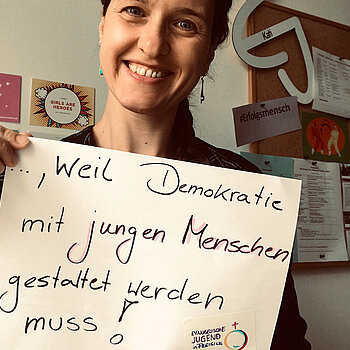 Kati
GIRLS ARE
HEROES
#Erfolgsmensch
..., Weil Demokratie
mit jungen Menschen
gestaltet werden
muss!
EVANGELISCHE
JUGEND